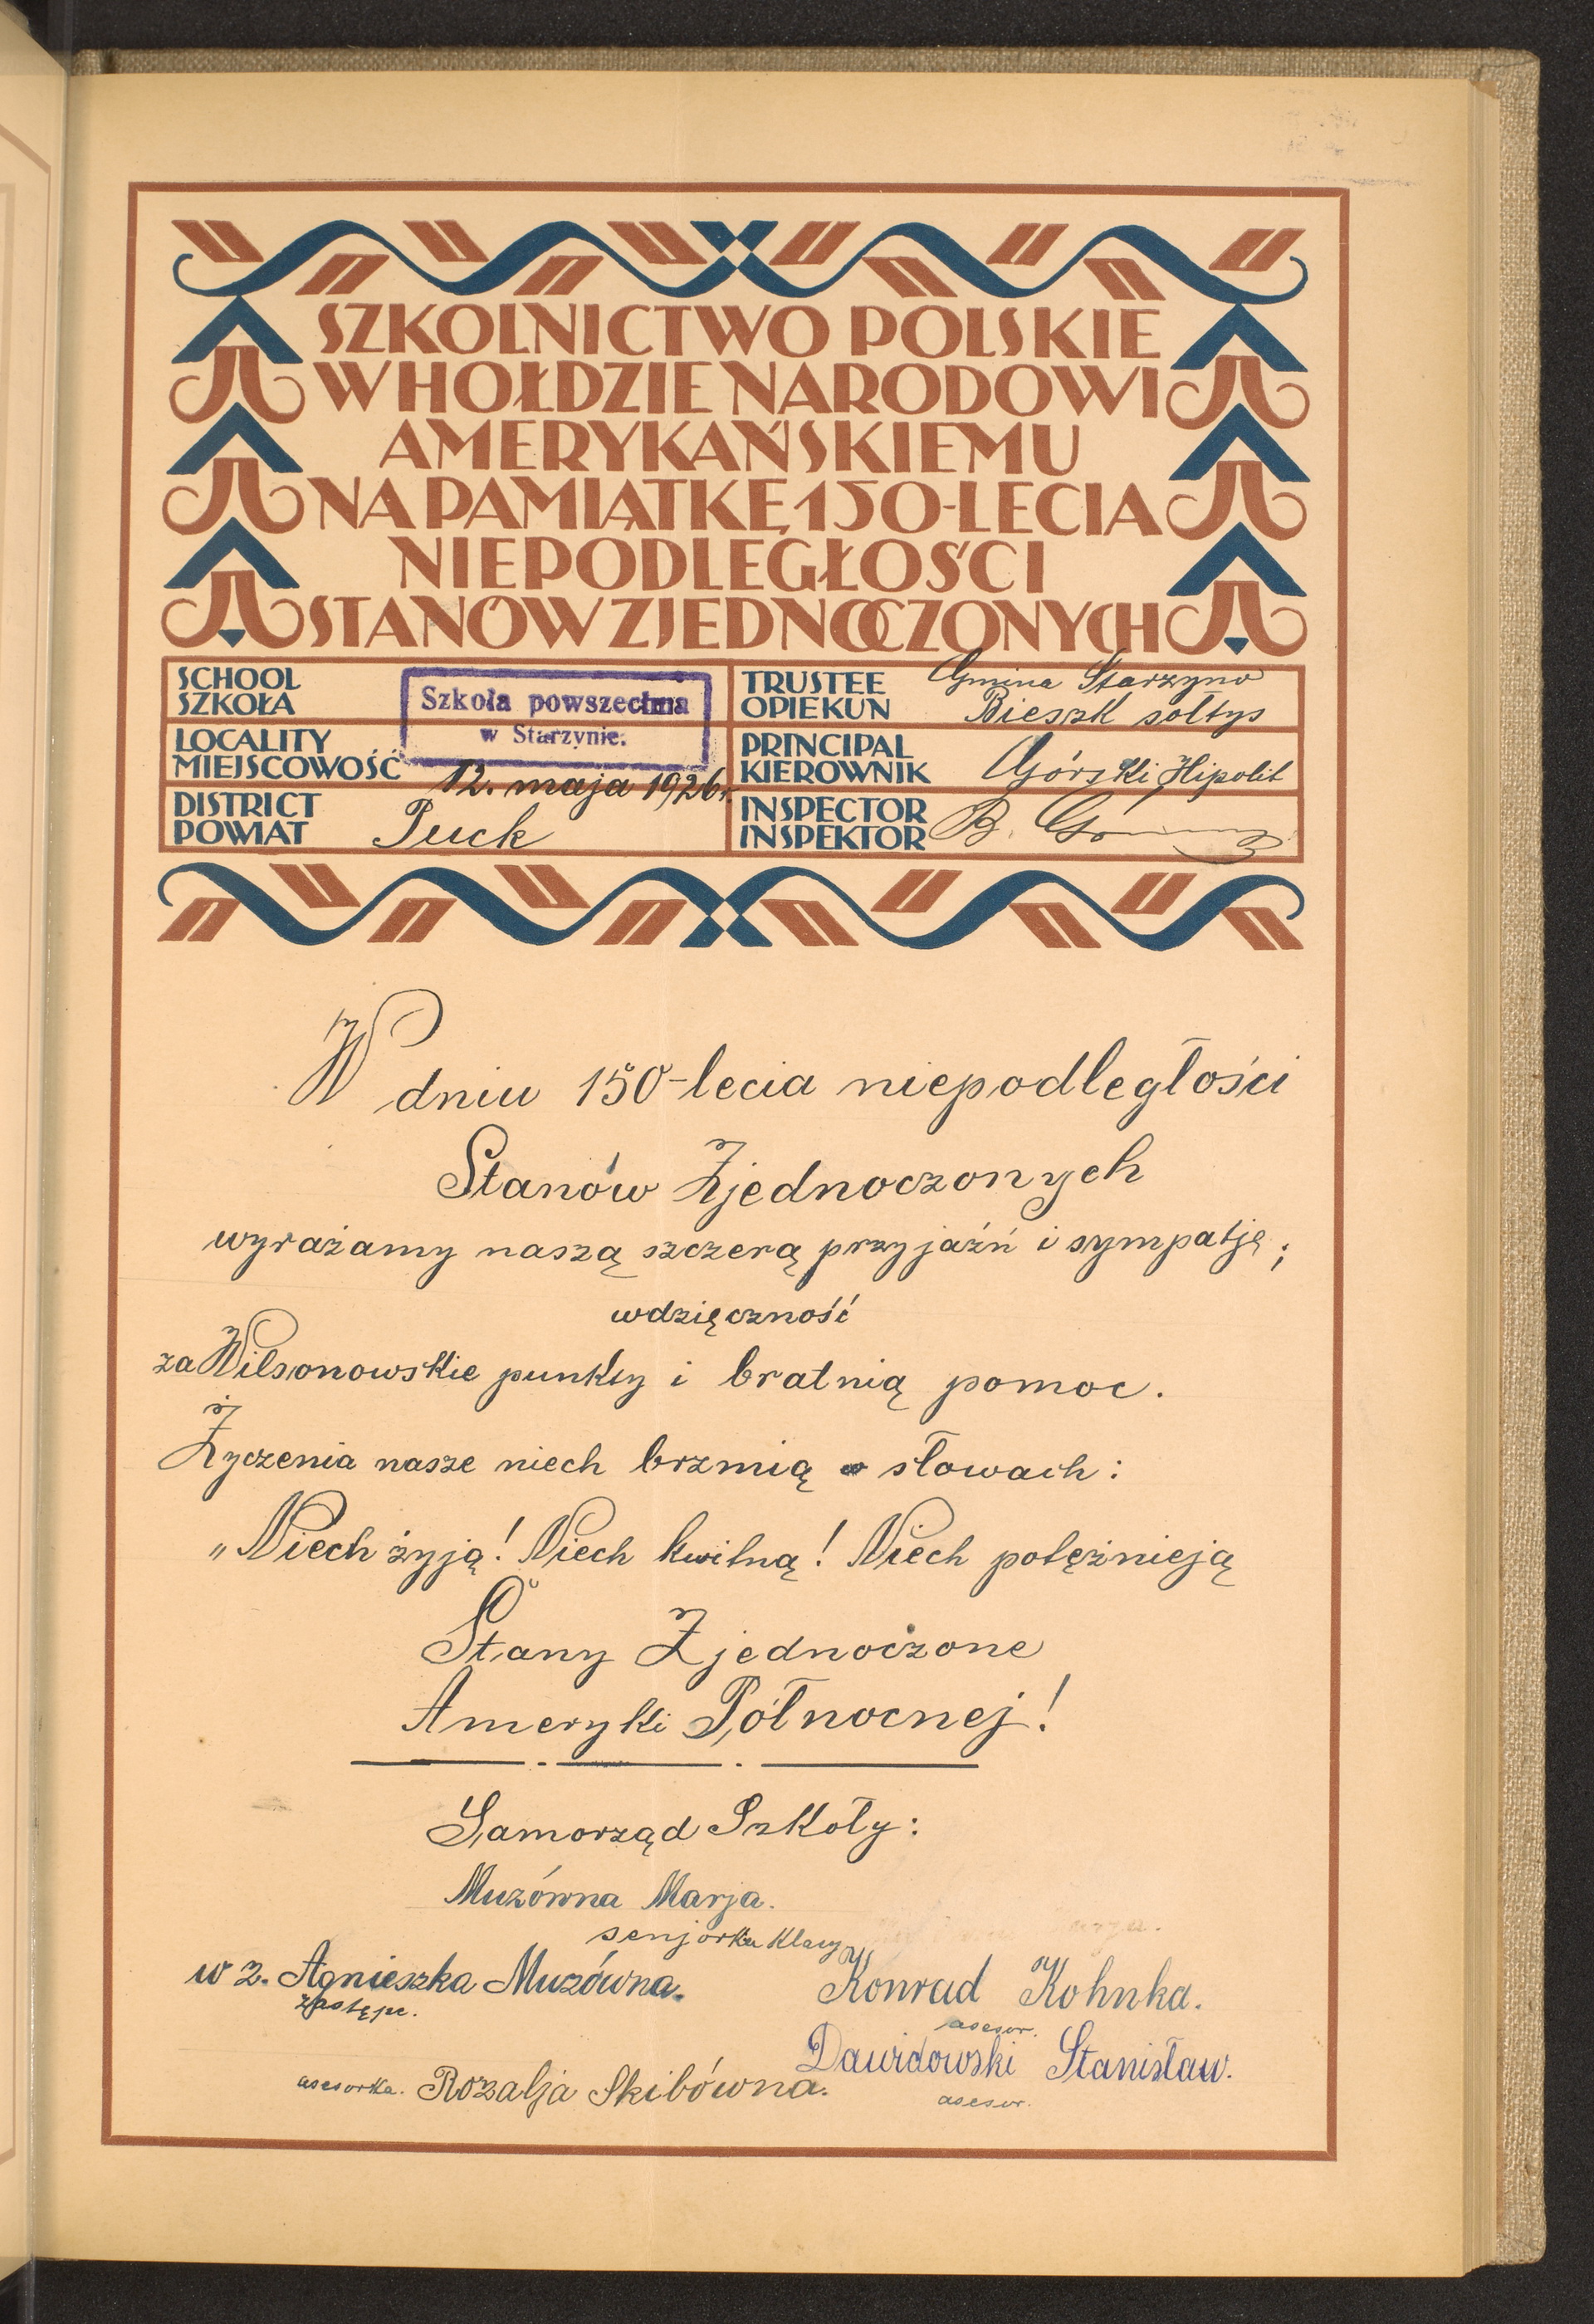 SZKOLNICTWO POLSKIE
W HOŁDZIE NARODOWI
AMERYKAŃSKIEMU
NA PAMIĄTKĘ 150-LECIA
NIEPODLEGŁOŚCI
STANÓW ZJEDNOCZONYCH
SCHOOL
SZKOŁA
Szkoła powszechna
w Starzynie.
LOCALITY
MIEJSCOWOŚĆ
12. maja 1926r.
DISTRICT
POWIAT
Puck
TRUSTEE
OPIEKUN
Gmina Starzyno
Bieszk sołtys
PRINCIPAL
KIEROWNIK
Górski Hipolit
INSPECTOR
INSPEKTOR
B.
W dniu 150-lecia niepodległości
Stanów Zjednoczonych
wyrażamy naszą szczerą przyjaźń i sympatję;
wdzięczność
za Wilsonowskie punkty i bratnią pomoc.
Życzenia nasze niech brzmią w słowach:
„Niech żyją! Niech kwitną! Niech potężnieją
Stany Zjednoczone
Ameryki Północnej!
Samorząd Szkoły:
Muzówna Marja.
senjorka klasy
w z. Agnieszka Muzówna.
zastępc.
Konrad Kohnka.
asesor.
Dawidowski Stanisław.
asesor.
asesorka. Rozalja Skibówna.